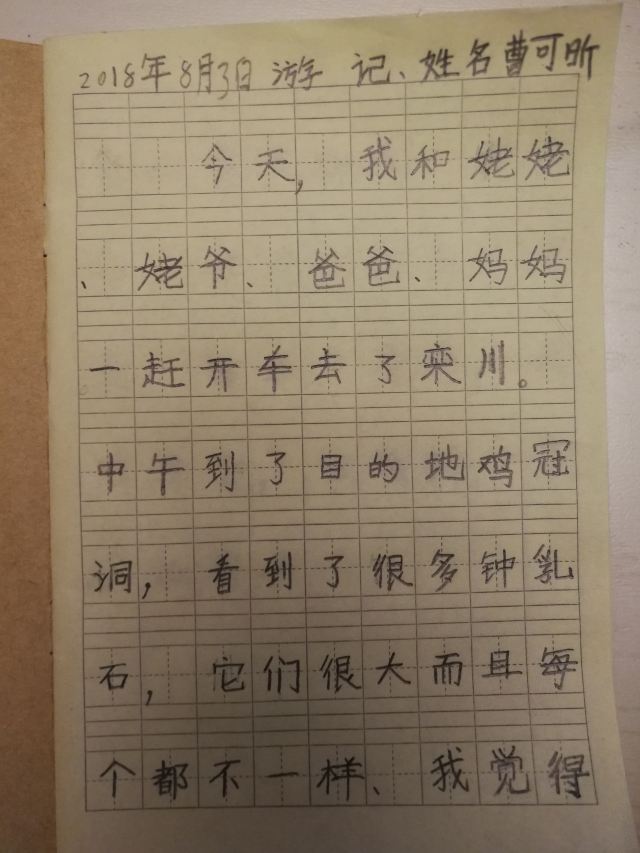 2018年8月3日 游 记、姓名曹可昕
今天，我和姥姥
、姥爷、爸爸、妈妈
一赶开车去了栾川。
中午到了目的地鸡冠
洞，看到了很多钟乳
石，它们很大而且每
个都不一样、我觉得